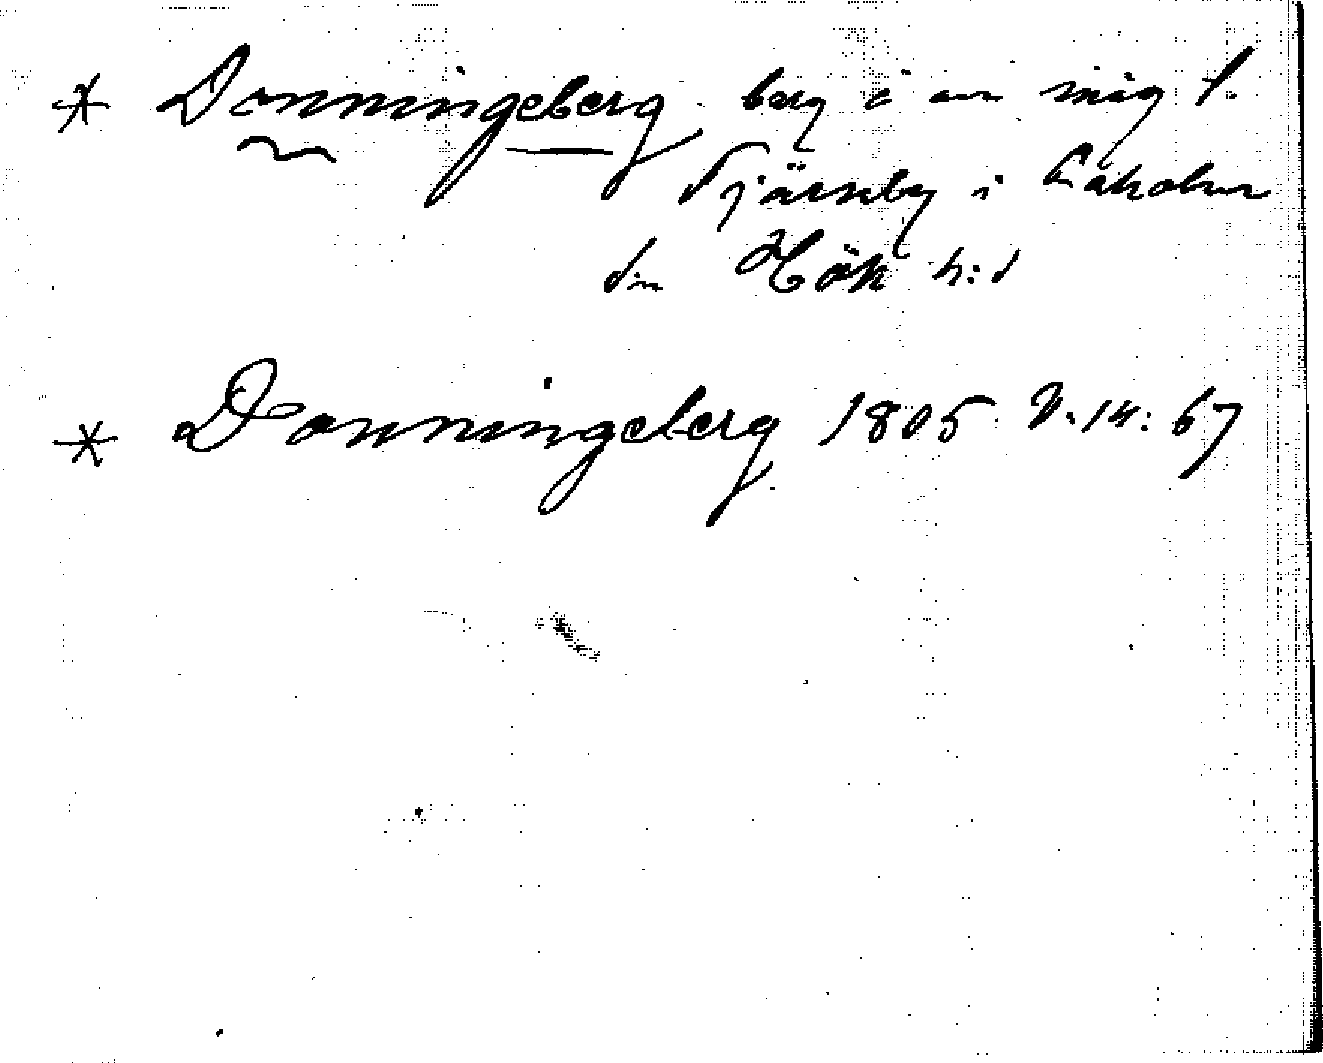 * Donningeberg berg i en mig f.
Tjärnby i Laholm
din Hök h:d
* Donningeberg 1805 N:14:67